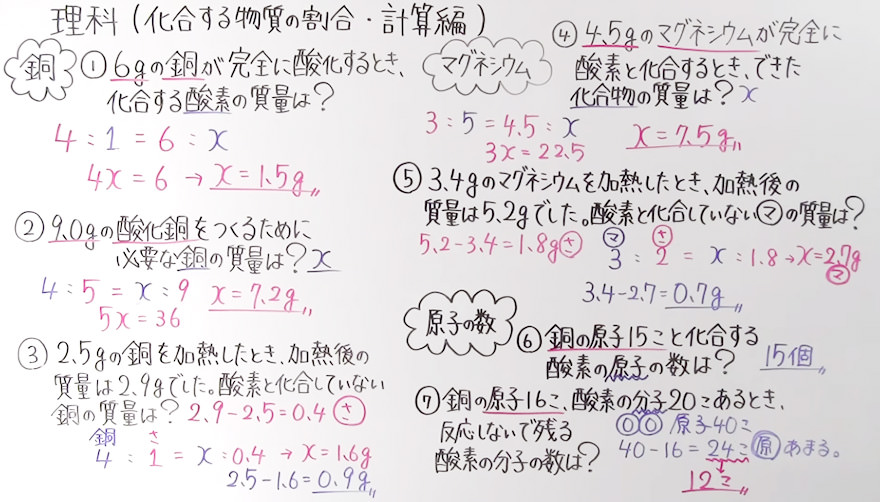 理科(化合する物質の割合・計算編)
銅
①6gの銅が完全に酸化するとき、
化合する酸素の質量は?
4:1=6:x
4x=6→x=1.5g〃
②9.0gの酸化銅をつくるために
必要な銅の質量は?x
4:5=x:9 x=7.2g〃
5x=36
③2.5gの銅を加熱したとき、加熱後の
質量は2.9gでした。酸素と化合していない
銅の質量は?2.9-2.5=0.4㋚
銅 さ
4:1=x:0.4→x=1.6g
2.5-1.6=0.9g〃
マグネシウム
④4.5gのマグネシウムが完全に
酸素と化合するとき、できた
化合物の質量は?x
3:5=4.5:x x=7.5g〃
3x=22.5
⑤3.4gのマグネシウムを加熱したとき、加熱後の
質量は5.2gでした。酸素と化合していない㋮の質量は?
5.2-3.4=1.8g㋚ ㋮3:㋚2=x:1.8→x=2.7g
㋮
3.4-2.7=0.7g〃
原子の数
⑥銅の原子15こと化合する
酸素の原子の数は? 15個〃
⑦銅の原子16こ、酸素の分子20こあるとき、
反応しないで残る
酸素の分子の数は?
○○原子40こ
40-16=24こ原あまる。
12こ〃